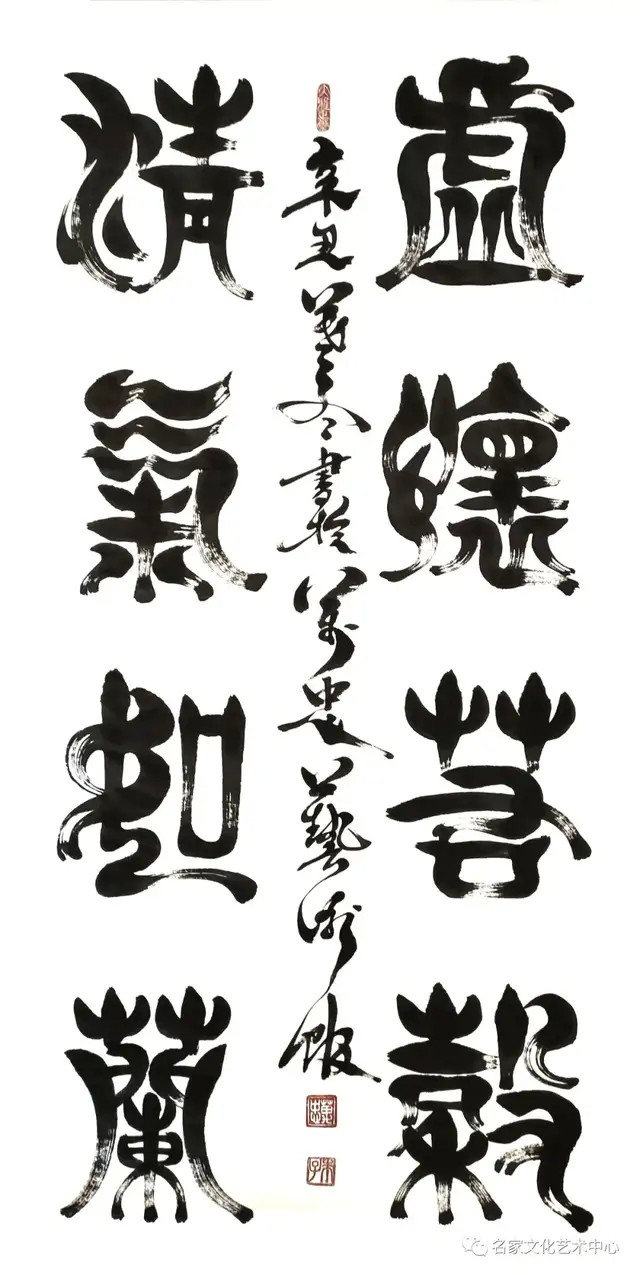 虛懷若穀
辛丑 之冬書於萬忠藝術館
清氣如蘭
名家文化艺术中心